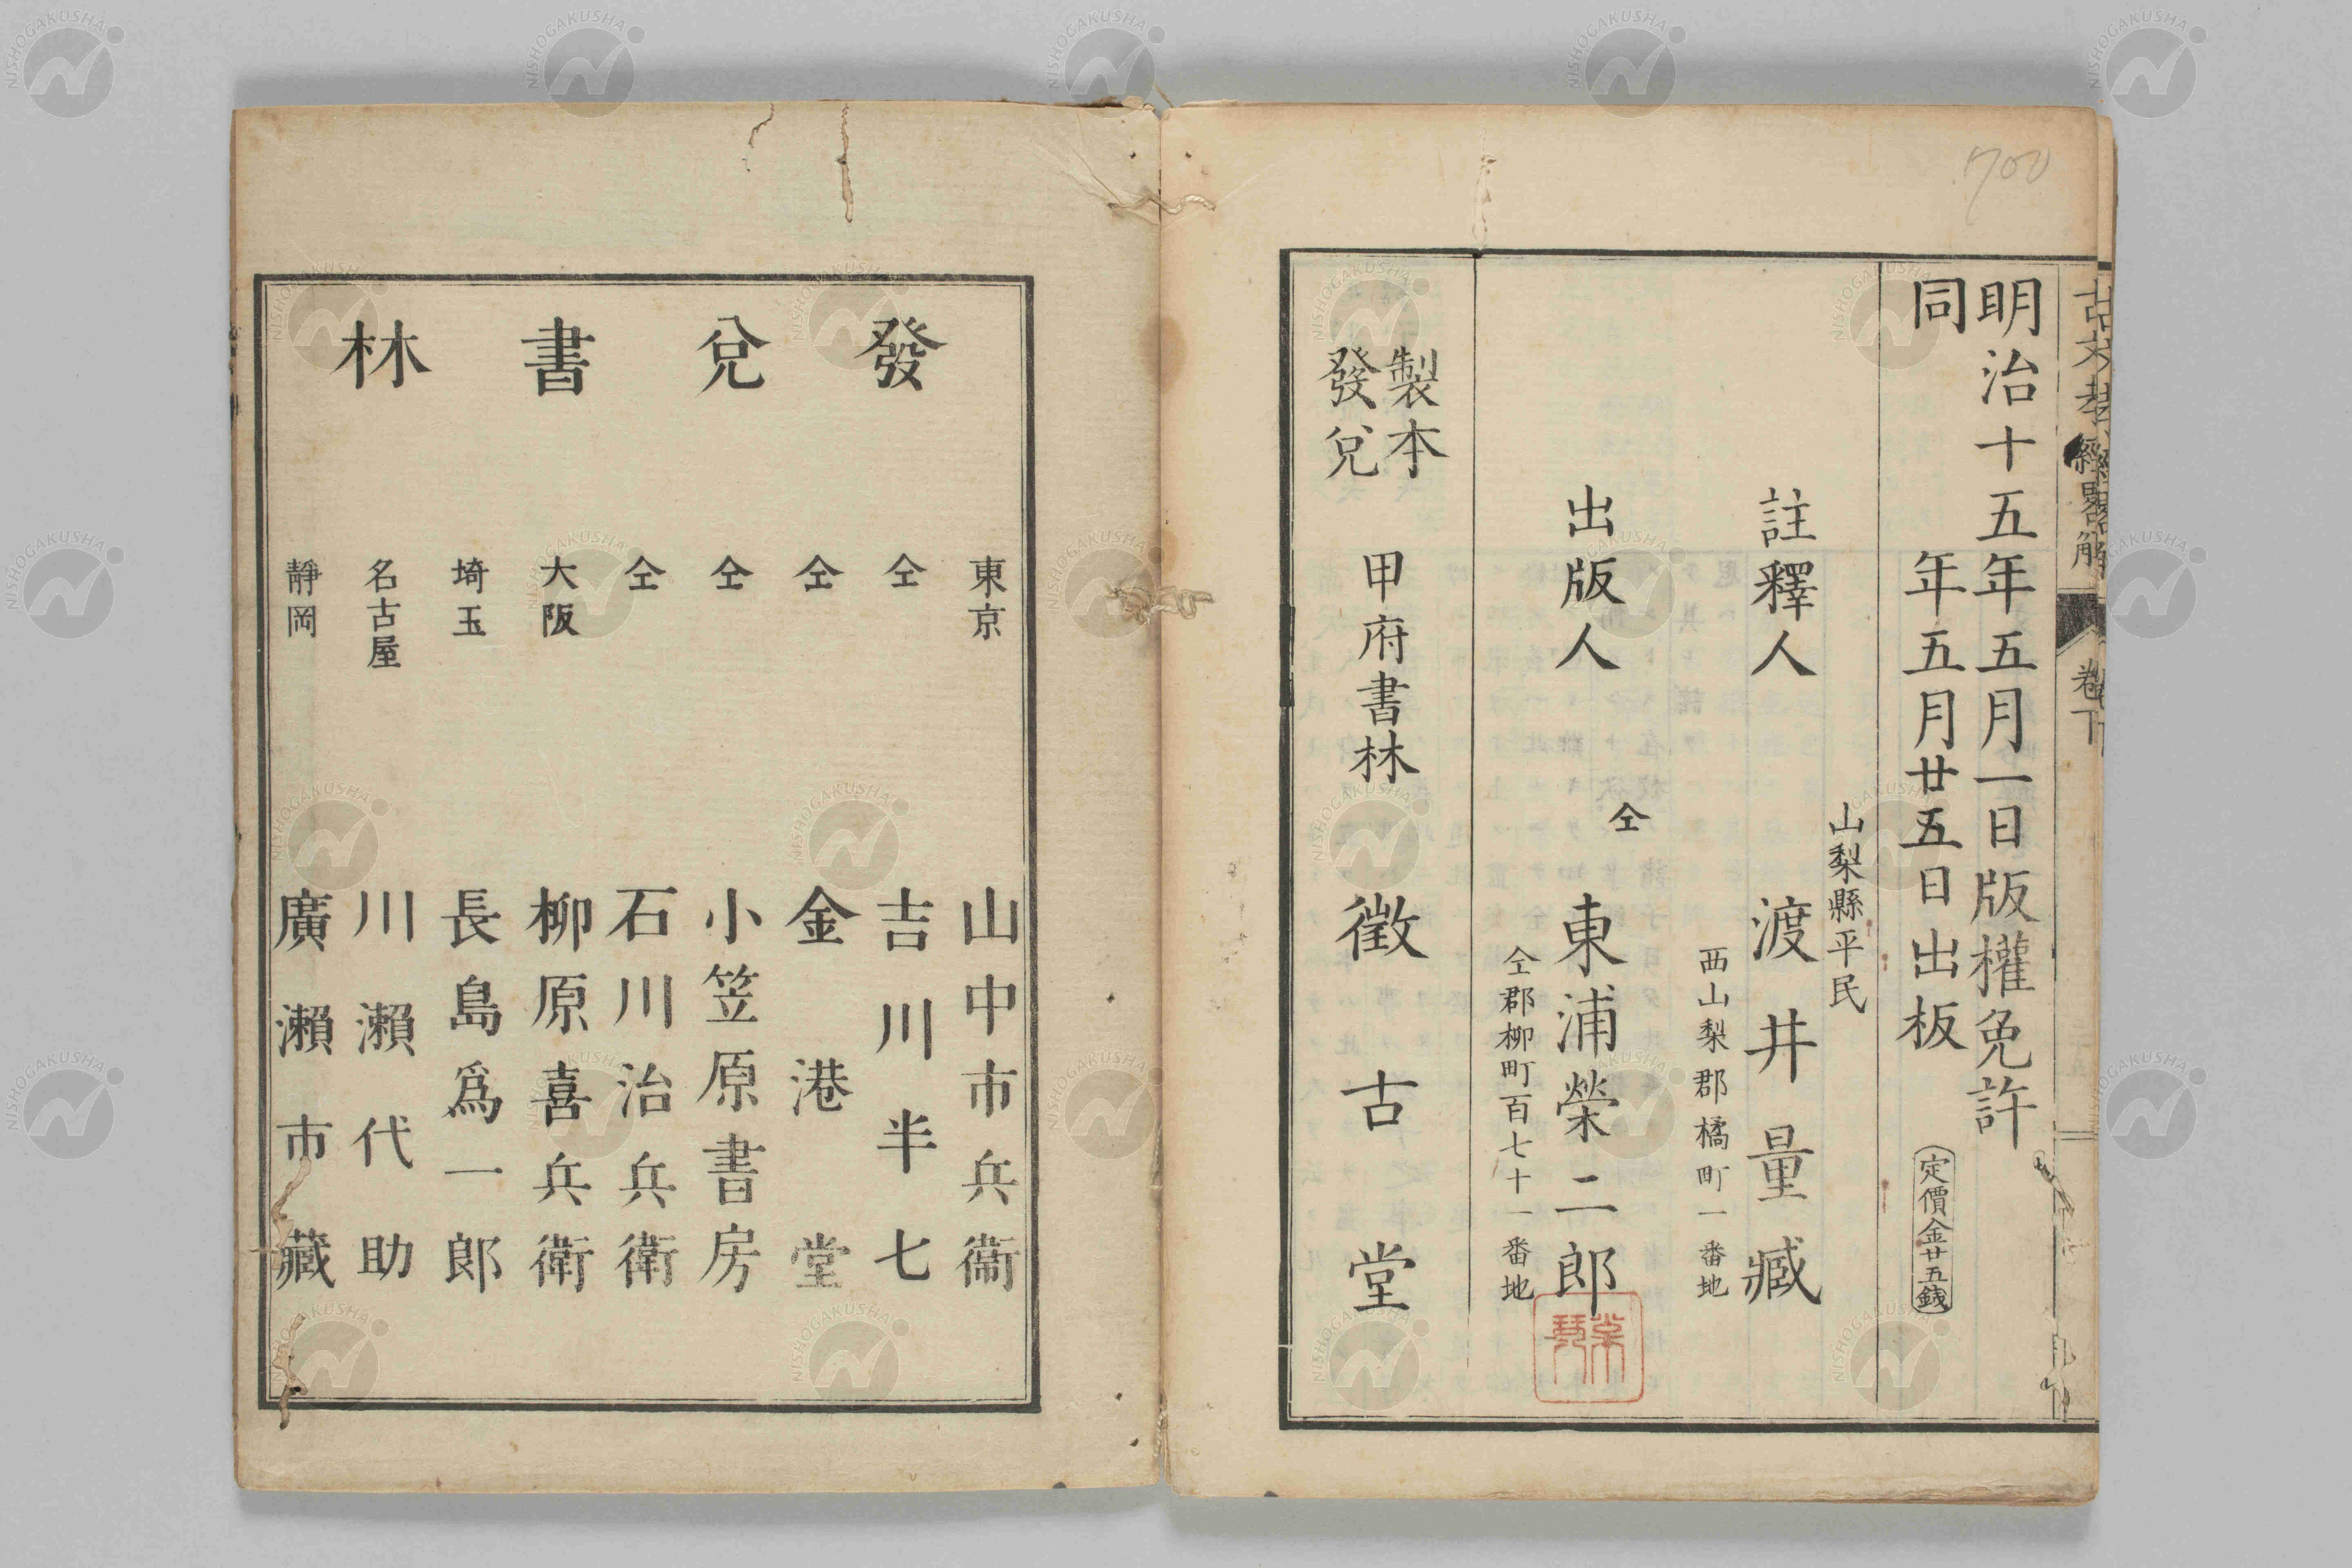 古文孝經畧解
卷下
明治十五年五月一日版權免許
同年五月廿五日出板
定價金廿五錢
山梨縣平民
註釋人 渡井量臧
西山梨郡橘町一番地
仝
出版人 東浦榮二郎
仝郡柳町百七十一番地
製本
發兌
甲府書林 徴古堂
1700
發兌書林
東京 山中市兵衞
仝 吉川半七
仝 金港堂
仝 小笠原書房
仝 石川治兵衛
大阪 柳原喜兵衛
埼玉 長島爲一郎
名古屋 川瀨代助
靜岡 廣瀨市藏
NISHOGAKUSHA